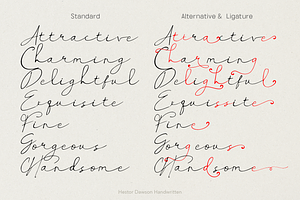 Standard
Attractive
Charming
Delightful
Exquisite
Fine
Gorgeous
Handsome
Alternative & Ligature
Attractive
Charming
Delightful
Exquisite
Fine
Gorgeous
Handsome
Hector Dawson Handwritten